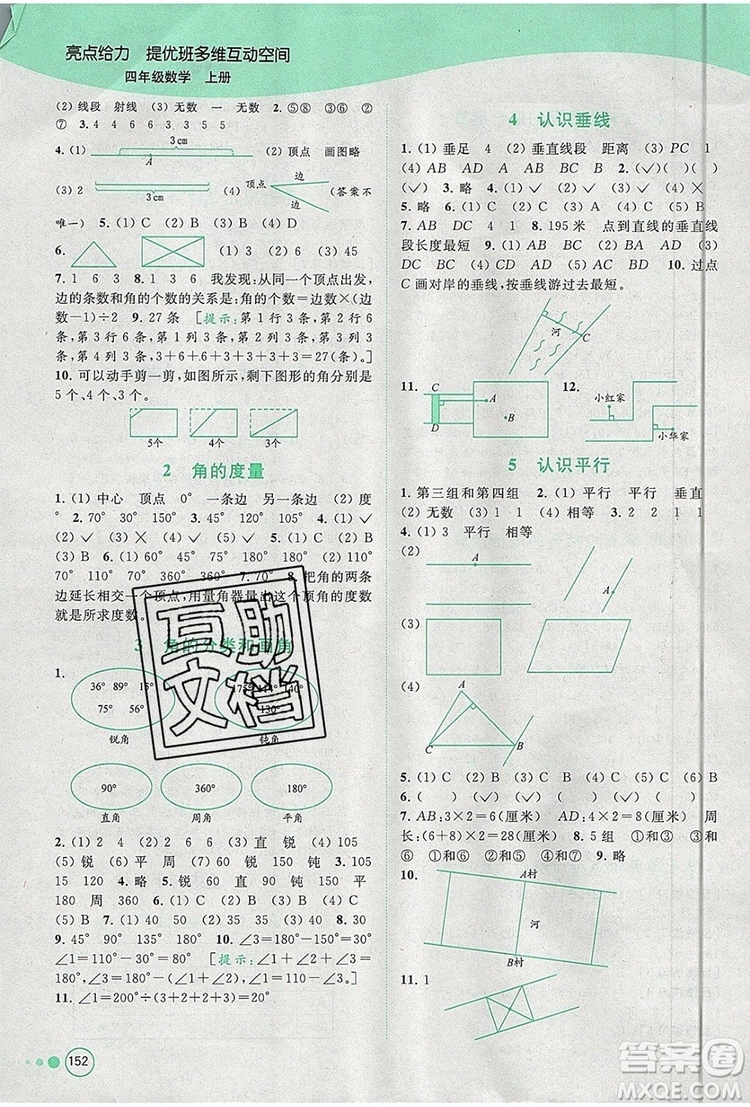 亮点给力 提优班多维互动空间
四年级数学 上册
(2) 线段 射线 (3) 无数 一 无数 2.⑤⑧ ③⑥ ②
⑦ 3.4 4 6 6 3 3 5 5
4.(1) 3cm A (2) 顶点 画图略
(3) 2 3cm (4) 顶点 边 边 (答案不
唯一) 5.(1) C (2) B (3) B (4) D
6. (1) 3 (2) 6 (3) 45
7.1 6 3 8.1 3 6 我发现:从同一个顶点出发,
边的条数和角的个数的关系是:角的个数=边数×(边
数-1)÷2 9.27 条 [提示:第 1 行 3 条,第 2 行
6 条,第 3 行 6 条,第 1 列 3 条,第 2 列 3 条,第 3 列
6 条,共有 3+6+6+3+3+6=27(条)。]
10.可以动手剪一剪,如图所示,剩下图形的角分别是
5 个、4 个、3 个。
5个 4个 3个
2 角的度量
1.(1) 中心 顶点 0° 一条边 另一条边 (2) 度
° 2.70° 30° 120° 3.45° 90° 105° 4.(1) ✓
(2) ✓
(3) B 6.60° 45° 75° 15° (2) 110°
70° 110° 70° 180° 360° 7.70° 8.把角的两条
边延长相交于一个顶点,用量角器量出这个顶角的度数
就是所求度数。
3 角的分类和画角
1.
36° 89° 15°
75° 56°
130°
锐角 钝角
90° 360° 180°
直角 周角 平角
2.(1) 2 4 (2) 6 2 (3) 直 锐 (4) 105
(5) 锐 (6) 平 周 (7) 锐 钝 锐 钝 3.105
115 4.略 5.锐 直 锐 平 周 6.(1) C
(2) A (3) B 7.(1) 40 50 (2) 40 8.30
9.45° 90° 135° 180° 10.∠3=180°-∠1-
∠2=110° ∠4=70° [提示:∠1+∠2+∠3=
180°,∠3+∠4=180°。]
11.∠1=(200°-180°)÷2=10° ∠2=20°
152
4 认识垂线
1.(1) 垂足 (2) 垂直线段 距离 (3) PC 1
(4) AB AD A AD 2.(1)(✓) (2)(✓) (3)
(✓) 3.略 4.(1) C (2) C (3) A (4) C (5) B
5.略 6.2 3 4 7.2 4 1 8.195 米 点到直线的垂直线
段长度最短 9.(1) AB DC AD BC (2) AD (3)
DC BC (4) AB DC AD BC 10.过点
C 画对岸的垂线,按垂线游过去最短。
C
河
11. C D A B 12. 小红家 小华家
5 认识平行
1.第三组和第四组 2.(1) 平行 平行 垂直
(2) 无数 (3) 1 1 3.2 2 1 (✓)
4.(1) 3 平行 相等 相等
(2) A A
(3)
(4) A C B
5.(1) C (2) B (3) B (4) C
7.AB:3×2=6(厘米) AD:4×2=8(厘米) 周
长:(6+8)×2=28(厘米) 8.5 组 ①和③ ③和
⑥ ①和⑥ ②和⑤ 9.略
10. A村 河 B村
11.1
互助
文档
答案圈
MXQE.COM